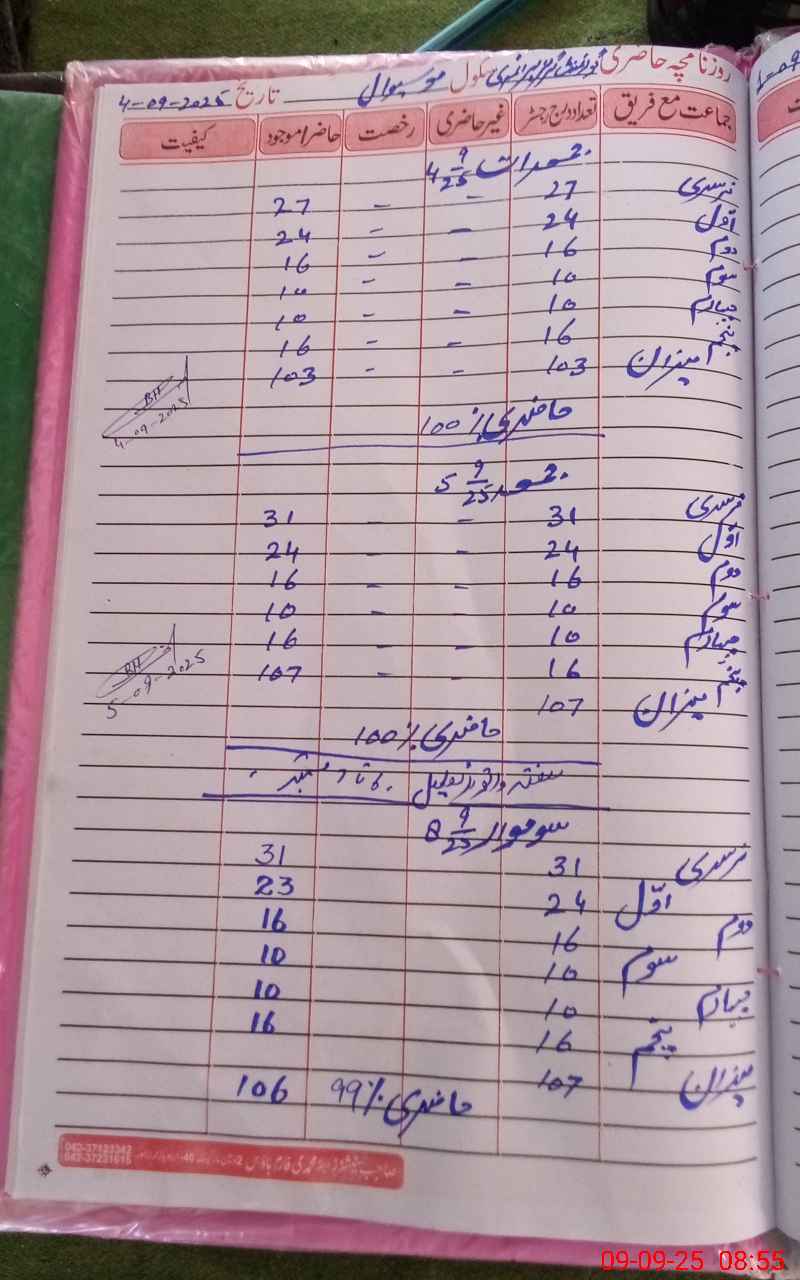 روزنامچہ حاضری گورنمنٹ گرلز پرائمری سکول موہسپوال تاریخ 4-09-2025
جماعت مع فریق تعداد درج رجسٹر غیر حاضری رخصت حاضر/موجود کیفیت
جمعرات 4 9/25
نرسری 27 - - 27
اوّل 24 - - 24
دوم 16 - - 16
سوم 10 - - 10
چہارم 10 - - 10
پنجم 16 - - 16
میزان 103 - - 103
BH
4-09-2025
حاضری 100%
جمعہ 5 9/25
نرسری 31 - - 31
اوّل 24 - - 24
دوم 16 - - 16
سوم 10 - - 10
چہارم 10 - - 16
پنجم 16 - - 107
میزان 107
BH
5-09-2025
حاضری 100%
ہفتہ و اتوار تعطیل 6 تا 7 ستمبر
سوموار 8 9/25
نرسری 31 31
اوّل 24 23
دوم 16 16
سوم 10 10
چہارم 10 10
پنجم 16 16
میزان 107 106
حاضری 99%
042-37123342
042-37231615
09-09-25 08:55